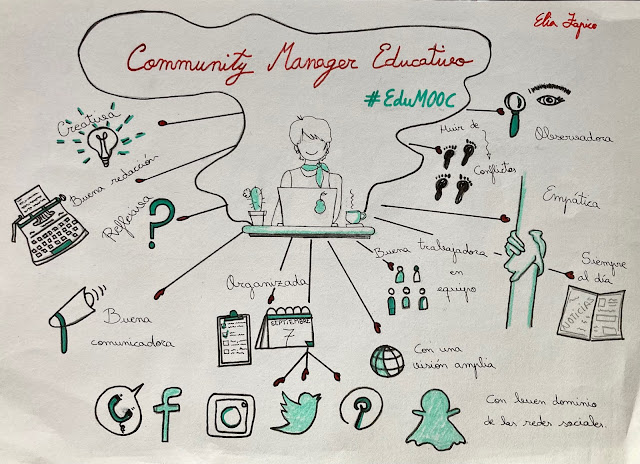 Elia Tapico
Community Manager Educativo
#EduMOOC
Creativa
Buena redacción
Reflexiva
Buena
comunicadora
Organizada
SEPTIEMBRE
7
Buena trabajadora
en
equipo
Con una
visión amplia
Huir de
Conflictos
Observadora
Empática
Siempre
al día
NOTICIAS
Con buen dominio
de las redes sociales.